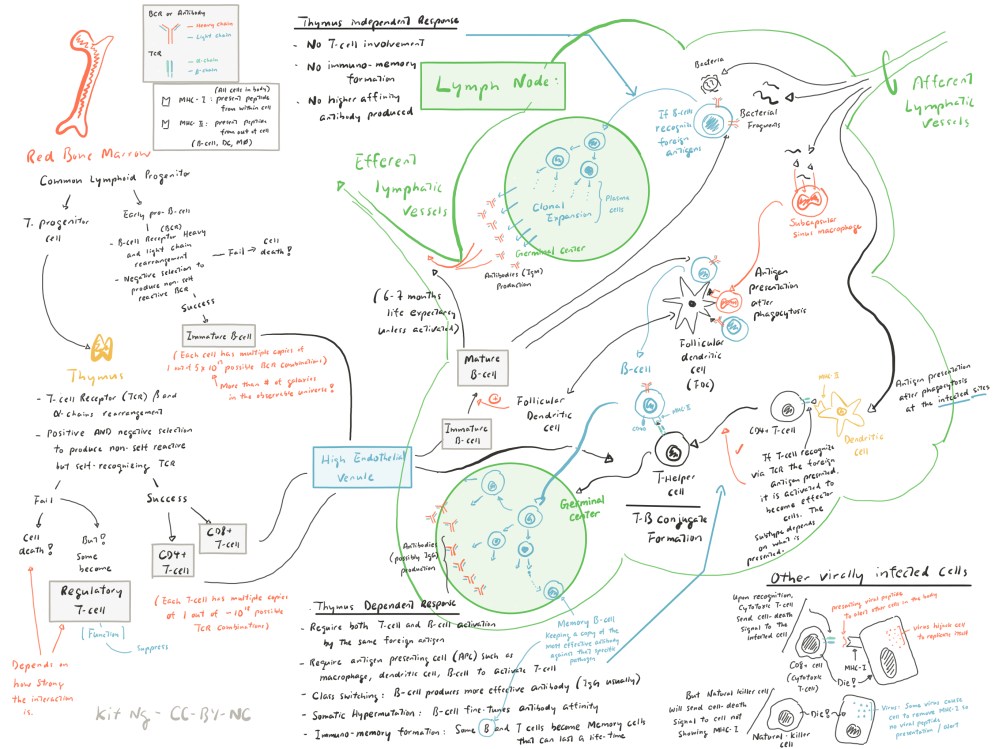 BCR or Antibody
Heavy chain
Light chain
TCR
α-chain
β-chain
(All cells in body)
MHC-I : present peptide
from within cell
MHC-II : present peptides
from out of cell
(B-cell, DC, MØ)
Red Bone Marrow
Common Lymphoid Progenitor
T. progenitor
cell
Early pro-B-cell
(BCR)
- B-cell Receptor Heavy
and light chain
rearrangement
- Negative selection to
produce non-self
reactive BCR
Fail → Cell
death!
Success
Immature B-cell
(Each cell has multiple copies of
possible BCR combinations)
More than # of galaxies
in the observable universe!
Thymus
- T-cell Receptor (TCR) β and
α-chains rearrangement
- Positive AND negative selection
to produce non-self reactive
but self-recognizing TCR
Fail
Success
Cell
death!
But!
Some
become
Regulatory
T-cell
(Function)
Suppress
CD8+
T-cell
CD4+
T-cell
(Each T-cell has multiple copies
of 1 out of possible
TCR combinations)
Depends on
how strong
the interaction
is.
Kit Ng - CC-BY-NC
Thymus independent Response
- No T-cell involvement
- No immuno-memory
formation
- No higher affinity
antibody produced
Lymph Node:
Efferent
lymphatic
vessels
Afferent
Lymphatic
vessels
Bacteria
Bacterial
Fragments
If B-cells
recognize
foreign
antigens
Clonal
Expansion
Plasma
cells
Germinal center
Antibodies (IgM)
Production
Subcapsular
sinus macrophage
Antigen
presentation
after
phagocytosis
Follicular
dendritic
cell
(FDC)
(6-7 months
life expectancy
unless activated)
Mature
B-cell
Immature
B-cell
Follicular
Dendritic
cell
High Endothelial
Venule
B-cell
MHC-II
CD40
T-Helper
cell
T-B Conjugate
Formation
CD4+ T-cell
MHC-II
Dendritic
cell
Antigen presentation
after phagocytosis
at the infected sites
If T-cell recognize
via TCR the foreign
antigen presented,
it is activated to
become effector
cells. The
subtype depends
on what is
presented.
Germinal
center
Antibodies
(possibly IgG)
production
Memory B-cell
Keeping a copy of the
most effective antibody
against that specific
pathogen
Thymus Dependent Response
- Require both T-cell and B-cell activation
by the same foreign antigen
- Require antigen presenting cell (APC) such as
macrophage, dendritic cell, B-cell to activate T-cell
- Class switching: B-cell produces more effective antibody (IgG usually)
- Somatic Hypermutation: B-cell fine-tunes antibody affinity
- Immuno-memory formation: Some B and T cells become Memory cells
that can last a life-time
Other virally infected cells
Upon recognition,
Cytotoxic T-cell
send cell-death
signal to the
infected cell
presenting viral peptide
to alert other cells in the body
virus hijacks cell
to replicate itself
CD8+ cell
(Cytotoxic
T-cell)
MHC-I
Die!
But Natural killer cell
will send cell-death
signal to cell not
showing MHC-I
Natural-killer
cell
Die!
Virus: Some virus cause
cell to remove MHC-I so
no viral peptide
presentation / alert